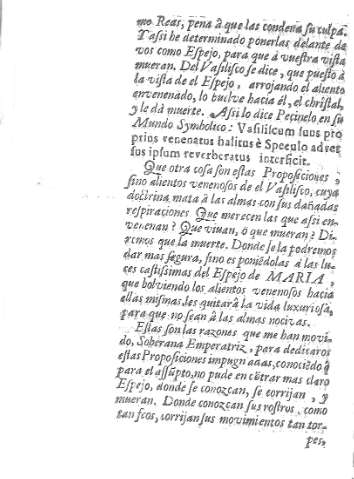 mo Reas, pena à que las condena su culpa.
Y assi he determinado ponerlas delante de
vos como Espejo, para que à vuestra vista
mueran. Del Vasilisco se dice, que puesto à
la vista de el Espejo, arrojando el aliento
envenenado, lo buelve hacia èl, el christal,
y le dà muerte. Assi lo dice Pecinelo en su
Mundo Symbolico: Vasiliscum suus pro
prius venenatus halitus è Speculo adver
sus ipsum reverberatus interficit.
Que otra cosa son estas Proposiciones,
sino alientos venenosos de el Vasilisco, cuya
doctrina mata à las almas con sus dañadas
respiraciones Que merecen las que assi en-
venenan? Que vivan, ò que mueran? Di-
remos que la muerte. Donde se la podremos
dar mas segura, sino es poniẽdolas à las lu-
ces castissimas del Espejo de MARIA,
que bolviendo los alientos venenosos hacia
ellas mismas, les quitarà la vida luxuriosa,
para que no sean à las almas nocivas.
Estas son las razones que me han movi-
do, Soberana Emperatriz, para dedicaros
estas Proposiciones impugnadas, conociẽdo q̃
para el assũpto, no pude encõtrar mas claro
Espejo, donde se conozcan, se corrijan, y
mueran. Donde conozcan sus rostros, como
tan feos, corrijan sus movimientos tan tor-
pes,